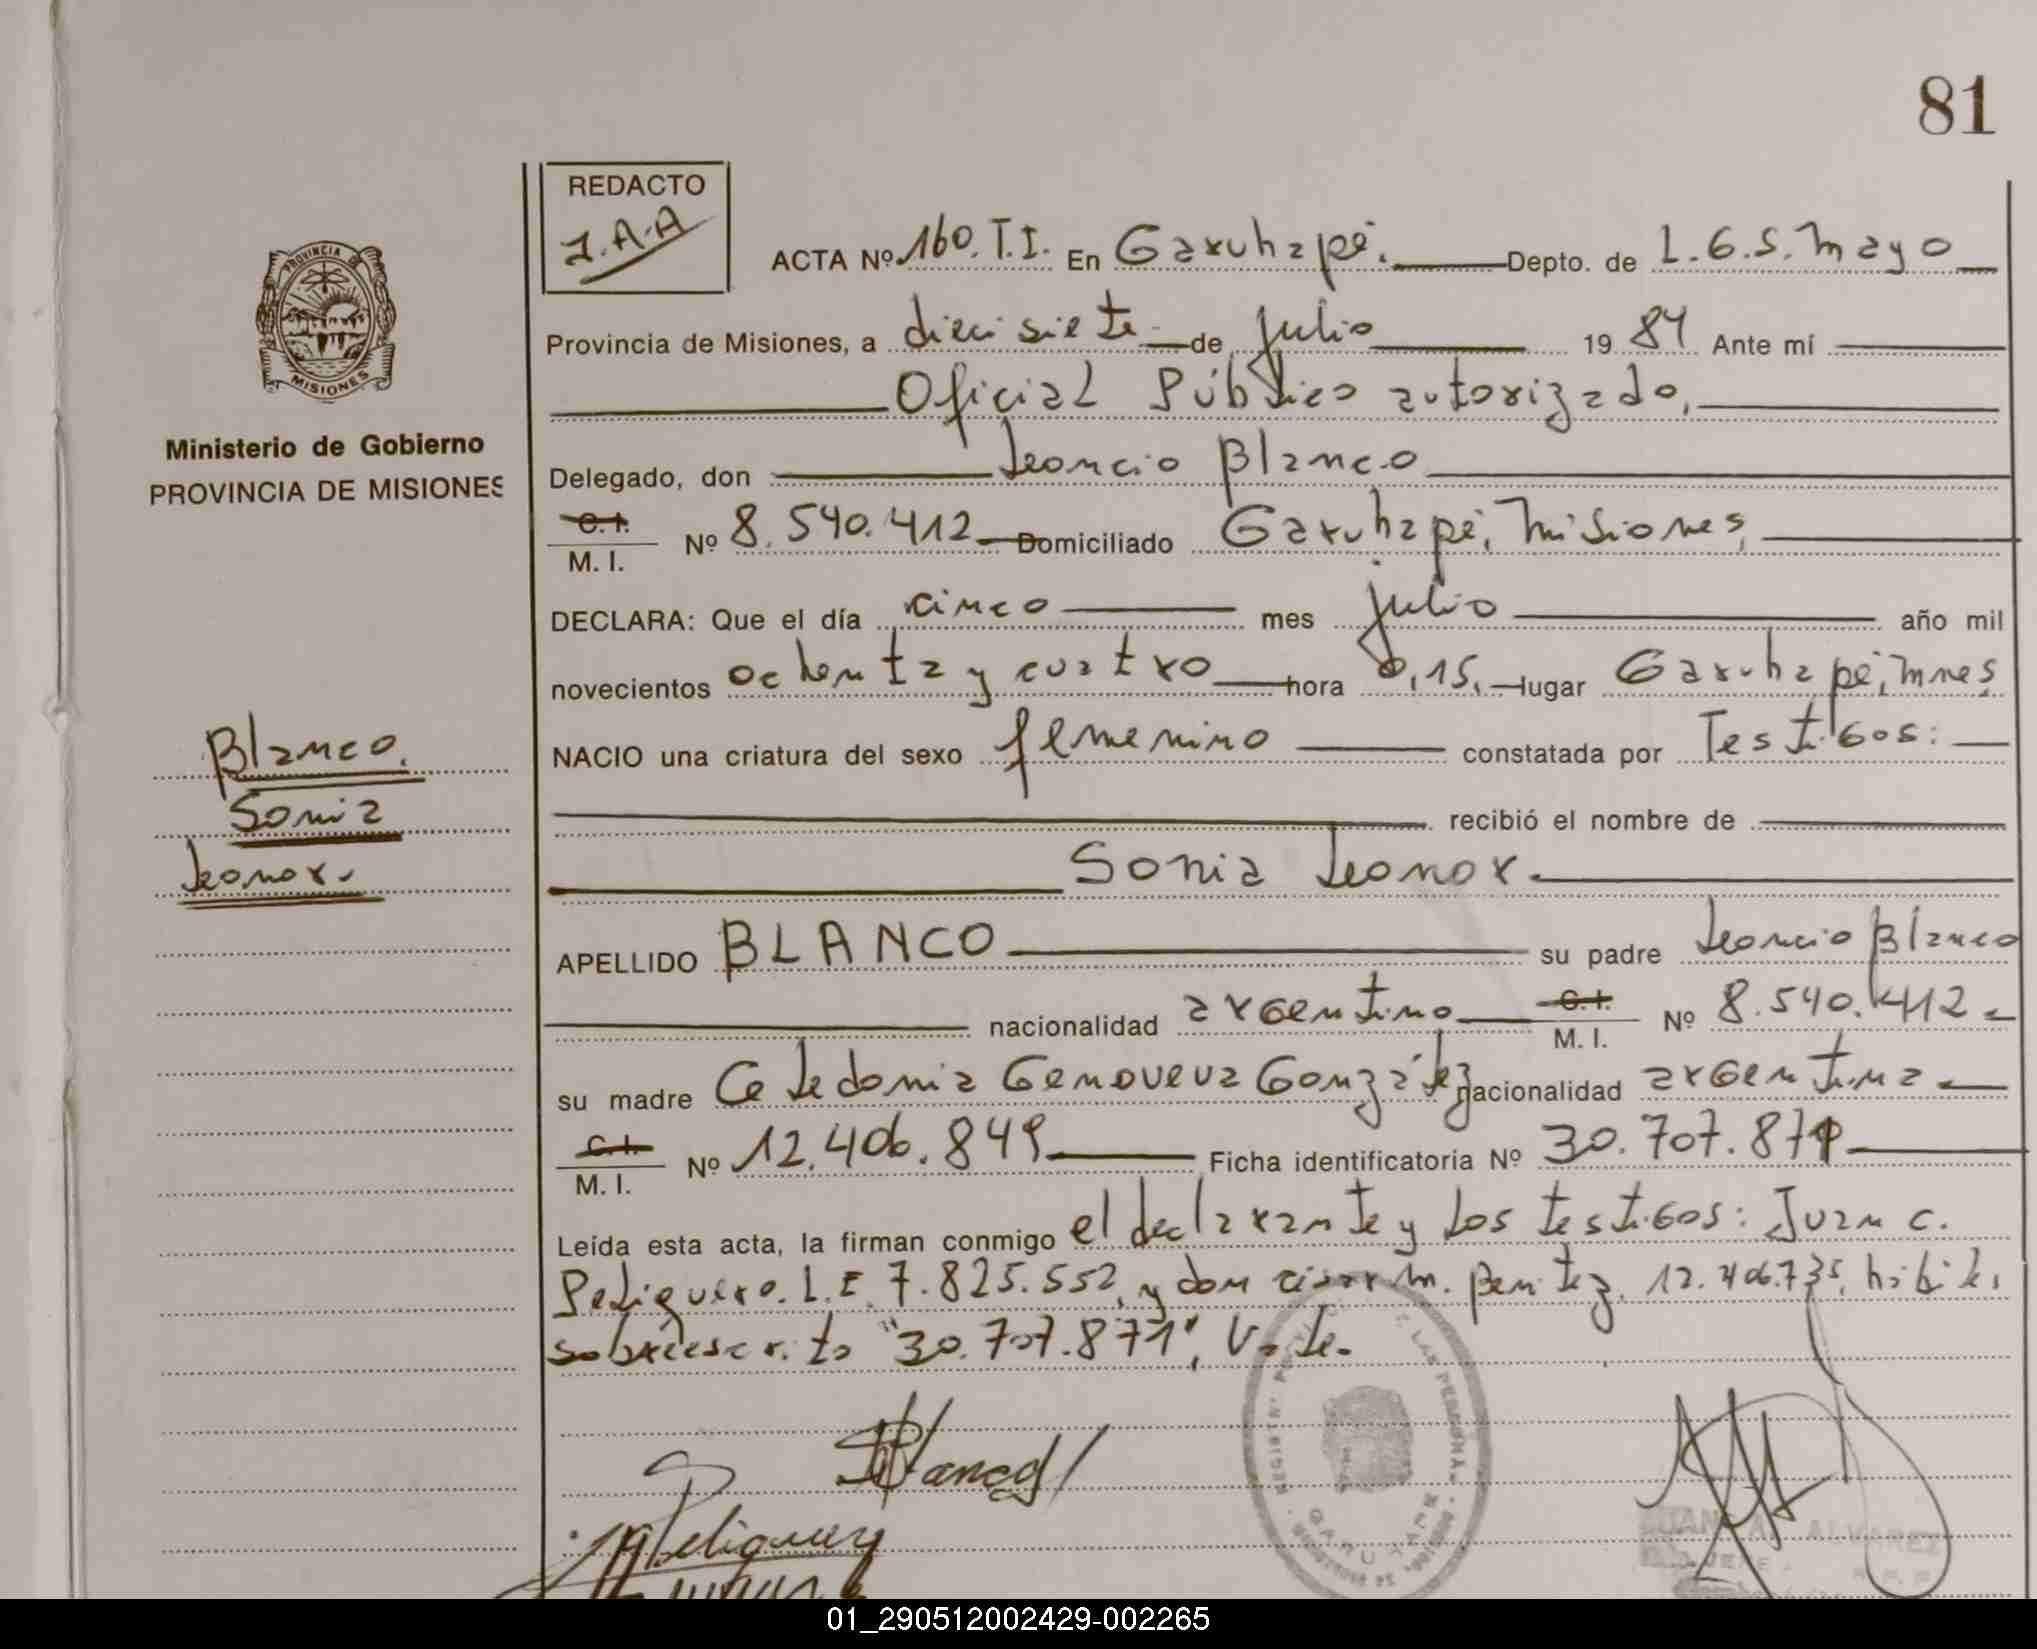 81
REDACTO
J.A.A
ACTA Nº 160.T.I. En Garuhapé. Depto. de L.G.S.Mayo
PROVINCIA DE
MISIONES
Provincia de Misiones, a diecisiete de julio 1984 Ante mí
Oficial Público autorizado,
Ministerio de Gobierno
PROVINCIA DE MISIONES
Delegado, don Leoncio Blanco
C. I.
M. I. Nº 8.540.412 Domiciliado Garuhapé, Misiones,
DECLARA: Que el día cinco mes julio año mil
novecientos ochenta y cuatro hora 0,15, lugar Garuhapé, Mnes,
NACIO una criatura del sexo femenino constatada por Testigos:
Blanco.
Sonia
Leonor.
recibió el nombre de
Sonia Leonor.
APELLIDO BLANCO su padre Leoncio Blanco
nacionalidad argentino C. I. M. I. Nº 8.540.412
su madre Celedonia Genoveva González nacionalidad argentina
C. I.
M. I. Nº 12.406.849 Ficha identificatoria Nº 30.707.871
Leída esta acta, la firman conmigo el declarante y los testigos: Juan C.
Peliquero. L.E. 7.825.552, y don M. 12.406.735, hábiles
sobreescrito "30.707.871", Vale.
Blanco
GARUHAPE
ALVAREZ
JEFE
01_290512002429-002265